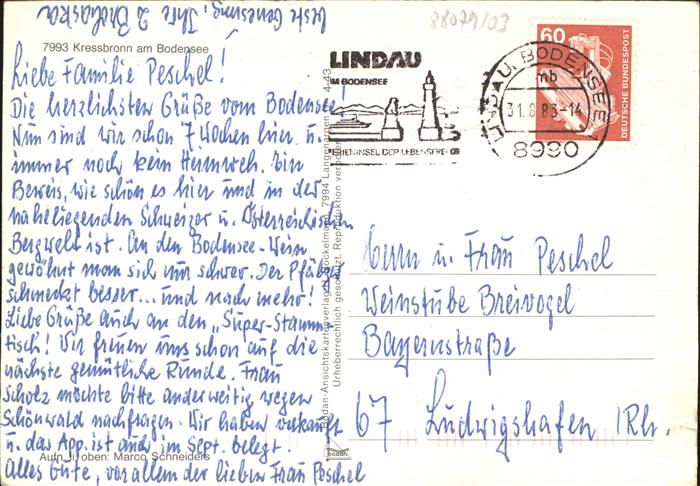 beste Genesung, Ihre 2
88079/03
7993 Kressbronn am Bodensee
Liebe Familie Peschel!
Die herzlichsten Grüße vom Bodensee!
Nun sind wir schon 7 Wochen hier u.
immer noch kein Heimweh. Ein
Beweis, wie schön es hier und in der
naheliegenden Schweizer u. Österreichischen
Bergwelt ist. An den Bodensee-Wein
gewöhnt man sich nur schwer. Der Pfälzer
schmeckt besser... und nach mehr!
Liebe Grüße auch an den "Super-Stamm-
tisch! Wir freuen uns schon auf die
nächste gemütliche Runde. Frau
Scholz möchte bitte anderweitig wegen
Schönwald nachfragen. Wir haben verkauft
u. das App. ist auch im Sept. belegt.
Alles Gute, vor allem der lieben Frau Peschel
Aufn. li. oben: Marco Schneiders
LINDAU
IM BODENSEE
FERIENINSEL DER LEBENSFREUDE
LINDAU U. BODENSEE
mb
31.8.83-14
8990
60
DEUTSCHE BUNDESPOST
Bodan-Ansichtskartenverlag 7994 Langenargen 4-43
Urheberrechtlich geschützt, Reproduktion verboten
Herrn u. Frau Peschel
Weinstube Breivogel
Bayernstraße
67 Ludwigshafen/Rh.